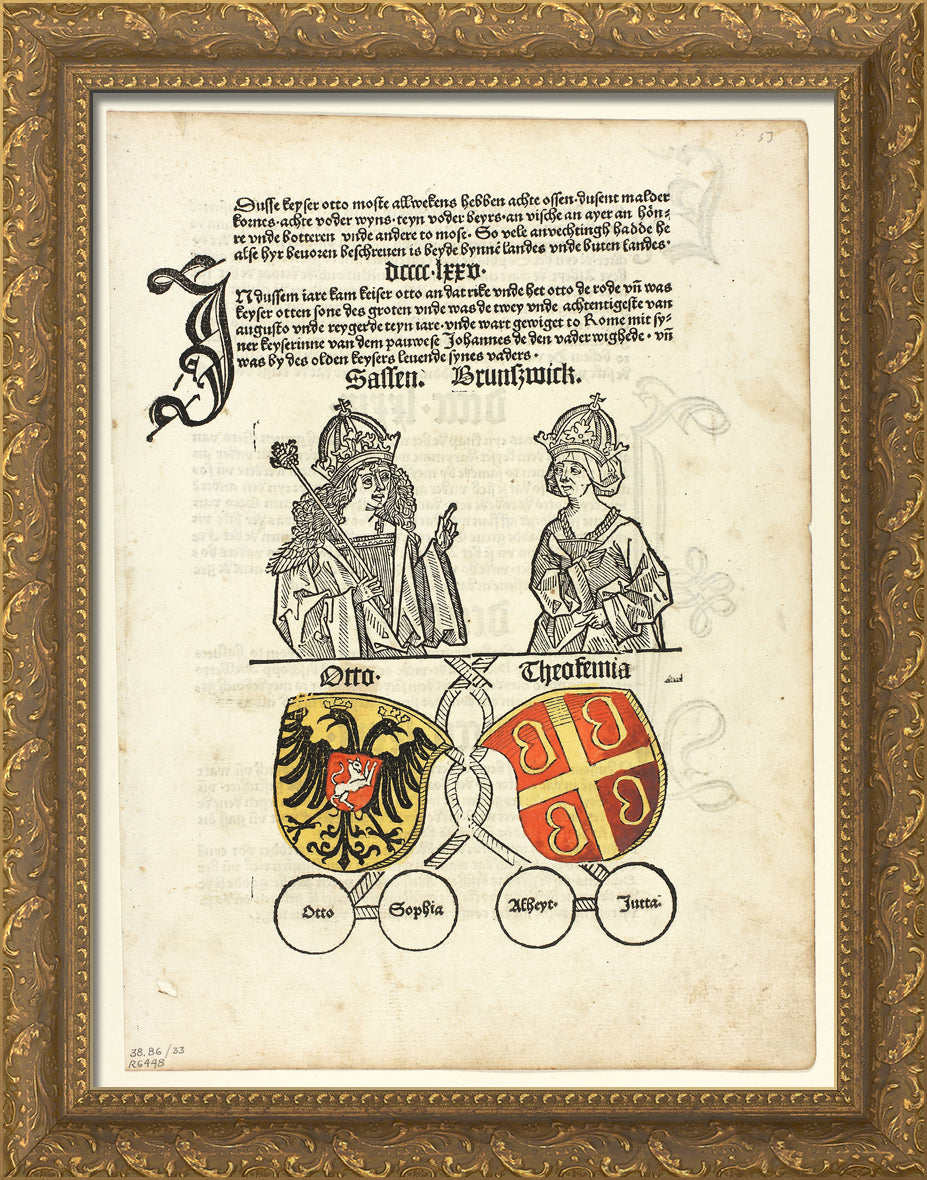 Dusse keyser otto moste all wekens hebben achte ossen·dusent malder
kornes·achte voder wyns·teyn voder beyrs·an vische an ayer an hön⸗
re vnde botteren vnde andere to mose· So vele anvechtingh hadde he
alse hyr beuoren beschreuen is beyde bynnē landes vnde buten landes·
dcccc·lxxv·
IN dussem iare kam keiser otto an dat rike vnde het otto de rode vn̄ was
keyser otten sone des groten vnde was de twey vnde achtentigeste van
augusto vnde reygerde teyn iare·vnde wart gewiget to Rome mit sy⸗
ner keyserinne van dem pauwese Johannes de den vader wighede· vn̄
was by des olden keysers leuende synes vaders·
Sassen. Brunßwick.
Otto· Theofemia
Otto Sophia Alheyt· Jutta·
38.86/33
R6448